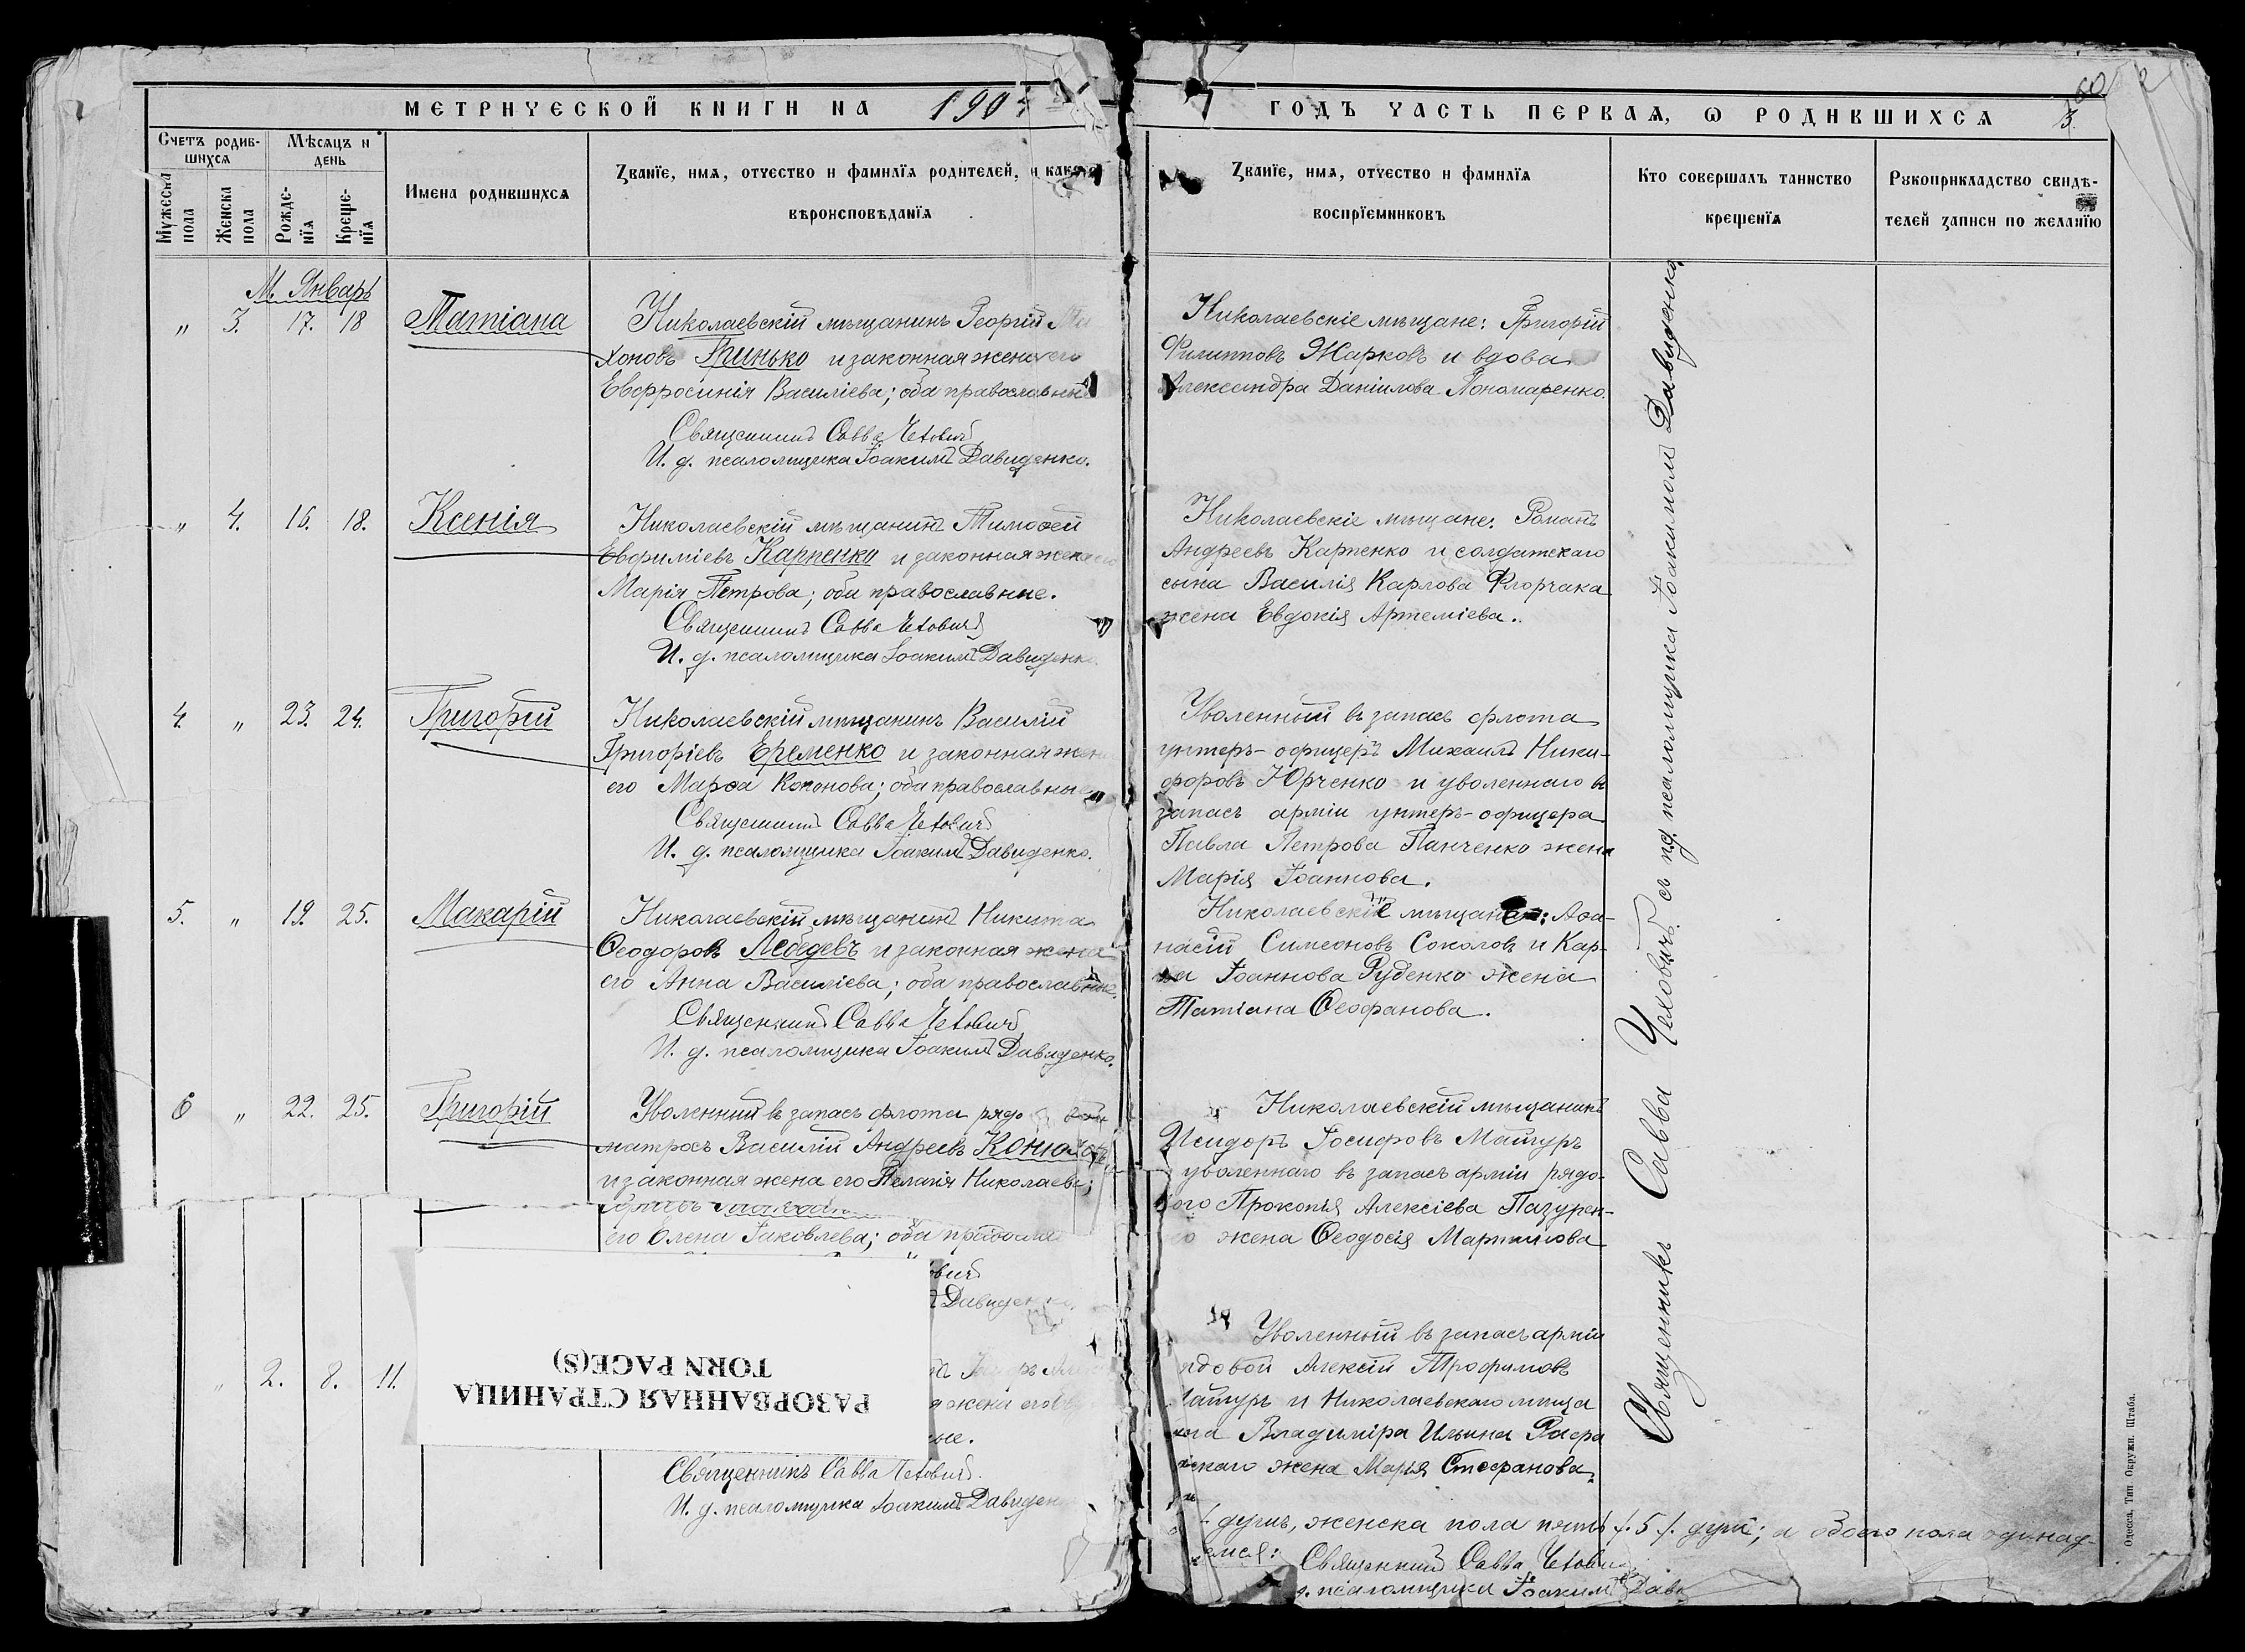 МЕТРИЧЕСКОЙ КНИГИ НА 190
ГОДЪ ЧАСТЬ ПЕРВАѦ, Ѡ РОДИВШИХСѦ
Счетъ родив-
шихсѧ
Мѣсѧцъ и
день
Мужеска
пола
Женска
пола
Рожде-
нїѧ
Креще-
нїѧ
Имена родившихсѧ
Званїе, имѧ, отчество и фамилїѧ родителей, и како
вѣроисповѣданїѧ
Званїе, имѧ, отчество и фамилїѧ
воспрїемниковъ
Кто совершалъ таинство
крещенїѧ
Рукоприкладство свидѣ-
телей записи по желанїю
М. Январь
" 3. 17. 18 Татіана
Николаевскій мѣщанинъ Георгій Ти
хоновъ Гринько и законная жена его
Евфросинія Василіева; оба православные
Священникъ Савва Чеховичъ
И. д. псаломщика Іоакимъ Давиденко.
Николаевскіе мѣщане: Григорій
Филипповъ Жарковъ и вдова
Александра Даніилова Пономаренко.
" 4. 16. 18. Ксенія
Николаевскій мѣщанинъ Тимоѳей
Евфиміевъ Карпенко и законная жена его
Марія Петрова; оба православные.
Священникъ Савва Чеховичъ
И. д. псаломщика Іоакимъ Давиденко.
Николаевскіе мѣщане: Романъ
Андреевъ Карпенко и солдатскаго
сына Василія Карлова Флорчака
жена Евдокія Артеміева.
4. " 23. 24. Григорій
Николаевскій мѣщанинъ Василій
Григоріевъ Еременко и законная жена
его Марѳа Кононова; оба православные
Священникъ Савва Чеховичъ
И. д. псаломщика Іоакимъ Давиденко.
Уволенный въ запасъ флота
унтеръ-офицеръ Михаилъ Ники-
форовъ Юрченко и уволеннаго въ
запасъ арміи унтеръ-офицера
Павла Петрова Панченко жена
Марія Іоаннова.
5. " 19. 25. Макарій
Николаевскій мѣщанинъ Никита
Ѳеодоровъ Лебедевъ и законная жена
его Анна Василіева; оба православные.
Священникъ Савва Чеховичъ
И. д. псаломщика Іоакимъ Давиденко.
Николаевскіе мѣщане: Аѳа-
насій Симеоновъ Соколовъ и Кар-
па Іоаннова Руденко жена
Татіана Ѳеофанова.
6 " 22. 25. Григорій
Уволенный въ запасъ флота
матросъ Василій Андреевъ
и законная жена его Пелагія Николаева;
Николаевскій мѣщанинъ
Исидоръ Іосифовъ Майгуръ
уволеннаго въ запасъ арміи рядо-
вого Прокопія Алексіева Пазурен-
жена Ѳеодосія Мартинова
его Елена Іаковлева; оба
овичъ
Давиденко.
РАЗОРВАННАЯ СТРАНИЦА
TORN PAGE(S)
" 2. 8. 11.
жена его
ные.
Священникъ Савва Чеховичъ.
И. д. псаломщика Іоакимъ Давиден
Уволенный въ запасъ арміи
ядовой Алексій Трофимовъ
айгуръ и Николаевскаго мѣща
Владиміра Ильина
скаго жена Марья Стефанова.
душъ, женска пола пять /.5/. душъ; а обоего пола одинад-
Священникъ Савва Чехови
псаломщика Іоакимъ Дав
Священникъ Савва Чеховичъ съ и.д. псаломщика Іоакимомъ Давиденко
Одесса. Тип. Окружн. Штаба.